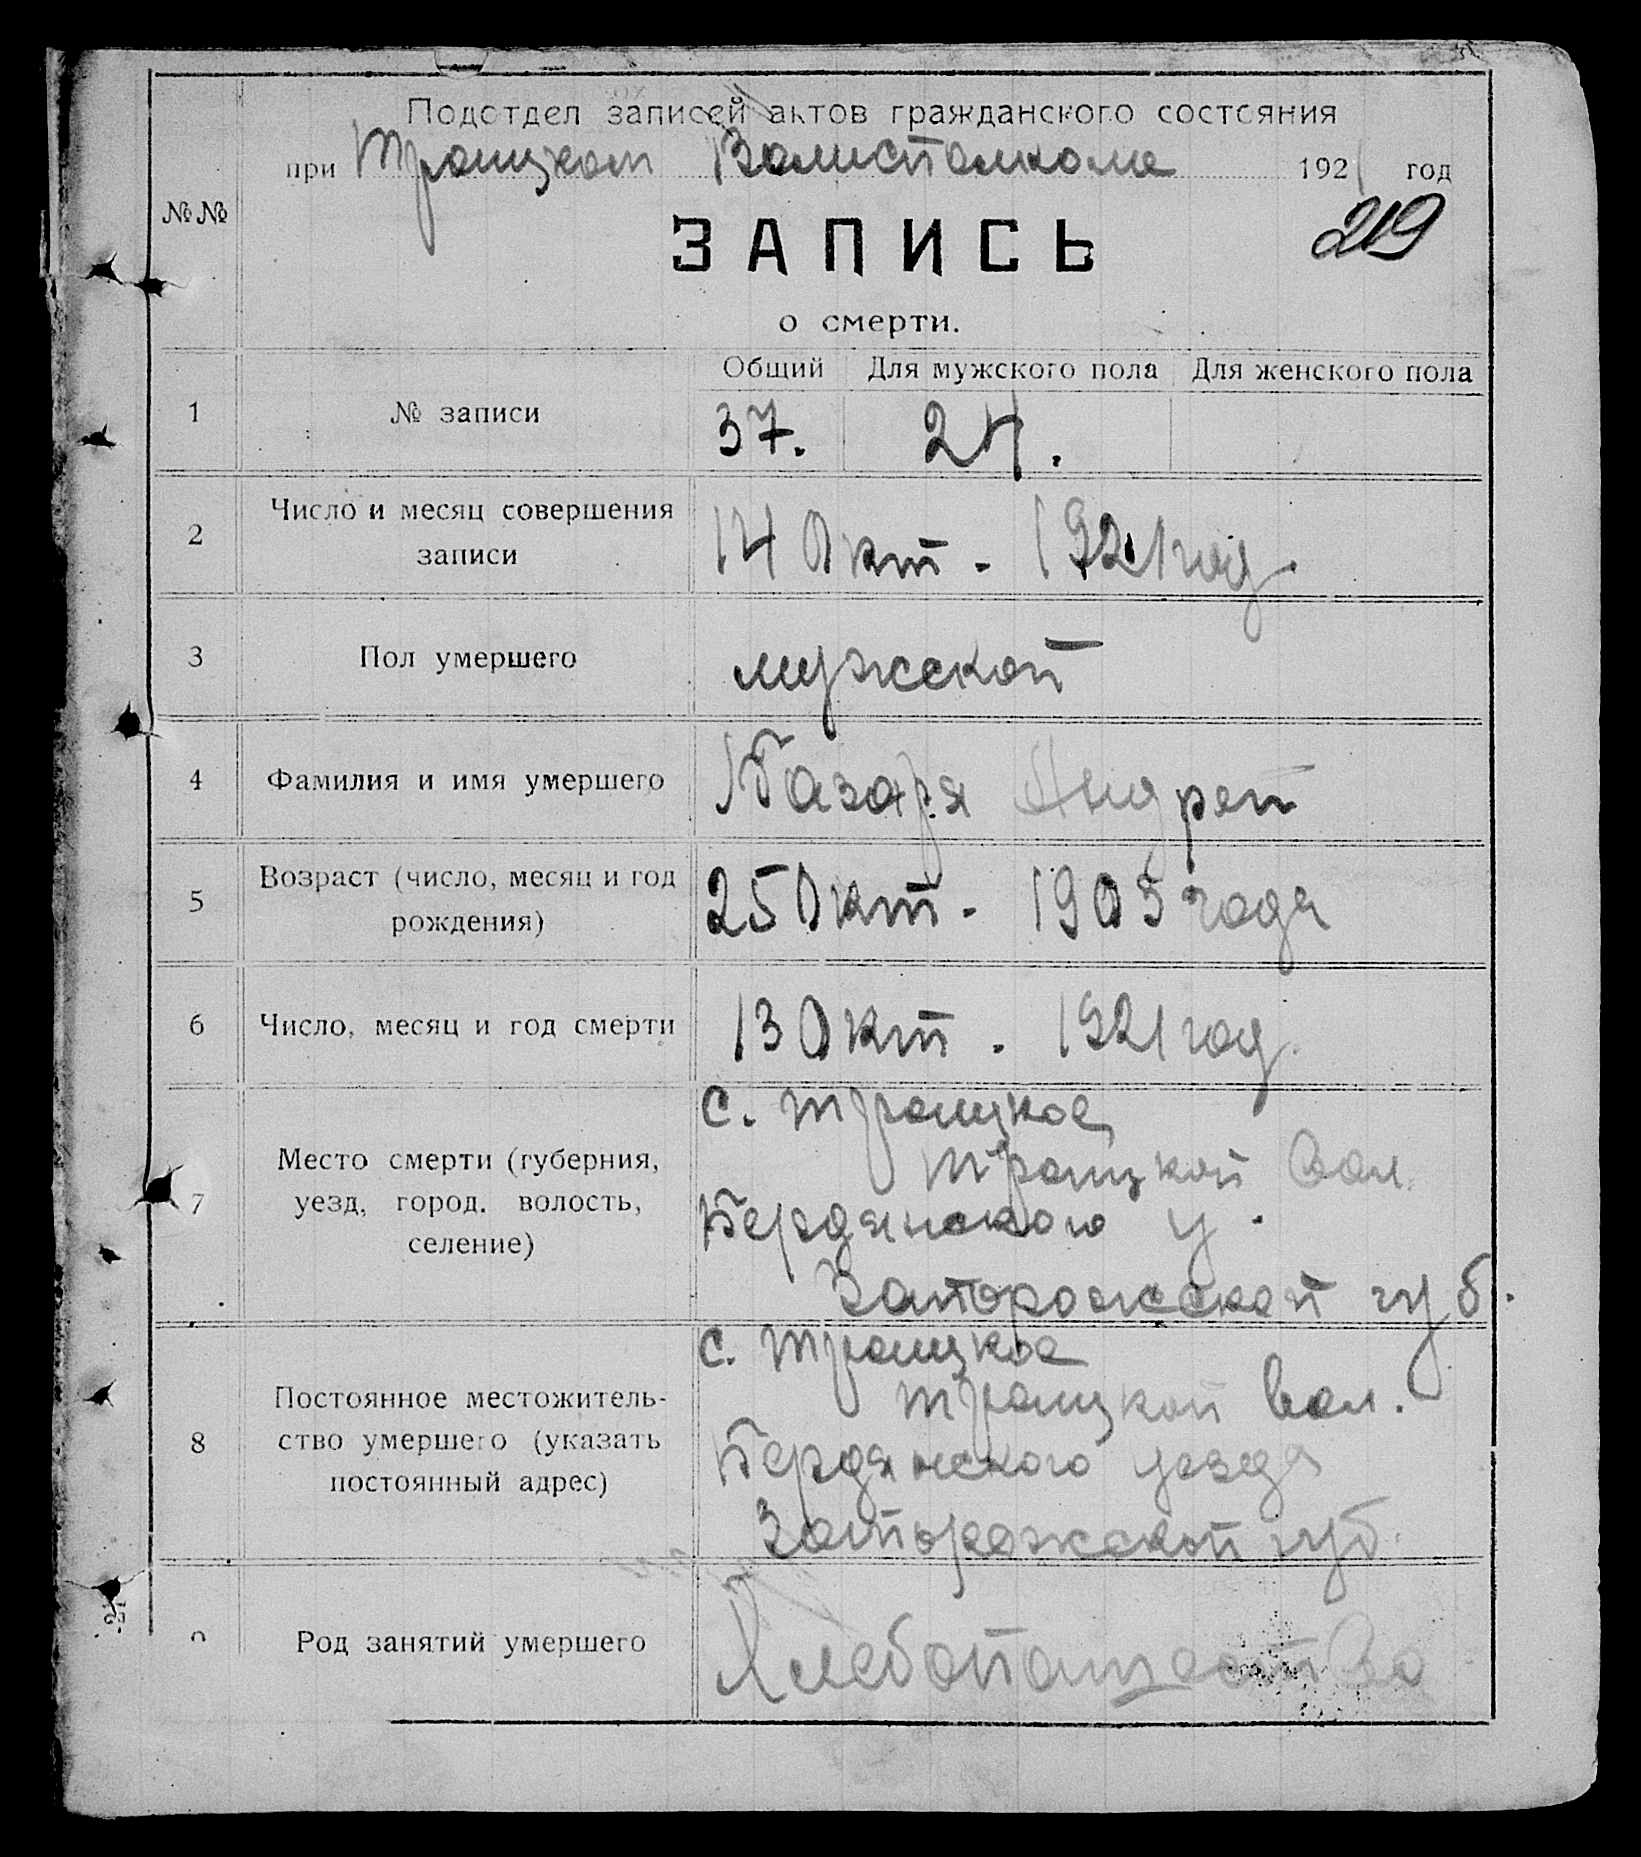 Подотдел записей актов гражданского состояния
при Троицком Волисполкоме 1921 год
№№
219
ЗАПИСЬ
о смерти.
Общий Для мужского пола Для женского пола
1 № записи 37. 24.
2 Число и месяц совершения
записи
14 Окт - 1921 год.
3 Пол умершего мужской
4 Фамилия и имя умершего Базаря Андрей
5 Возраст (число, месяц и год
рождения)
25 Окт - 1905 года
6 Число, месяц и год смерти 13 Окт. 1921 год.
7 Место смерти (губерния,
уезд, город. волость,
селение)
с. Троицкое
Троицкой Вол.
Бердянского у.
Запорожской губ.
8 Постоянное местожитель-
ство умершего (указать
постоянный адрес)
с. Троицкое
Троицкой Вол.
Бердянского уезда
Запорожской губ.
Род занятий умершего Хлебопашество